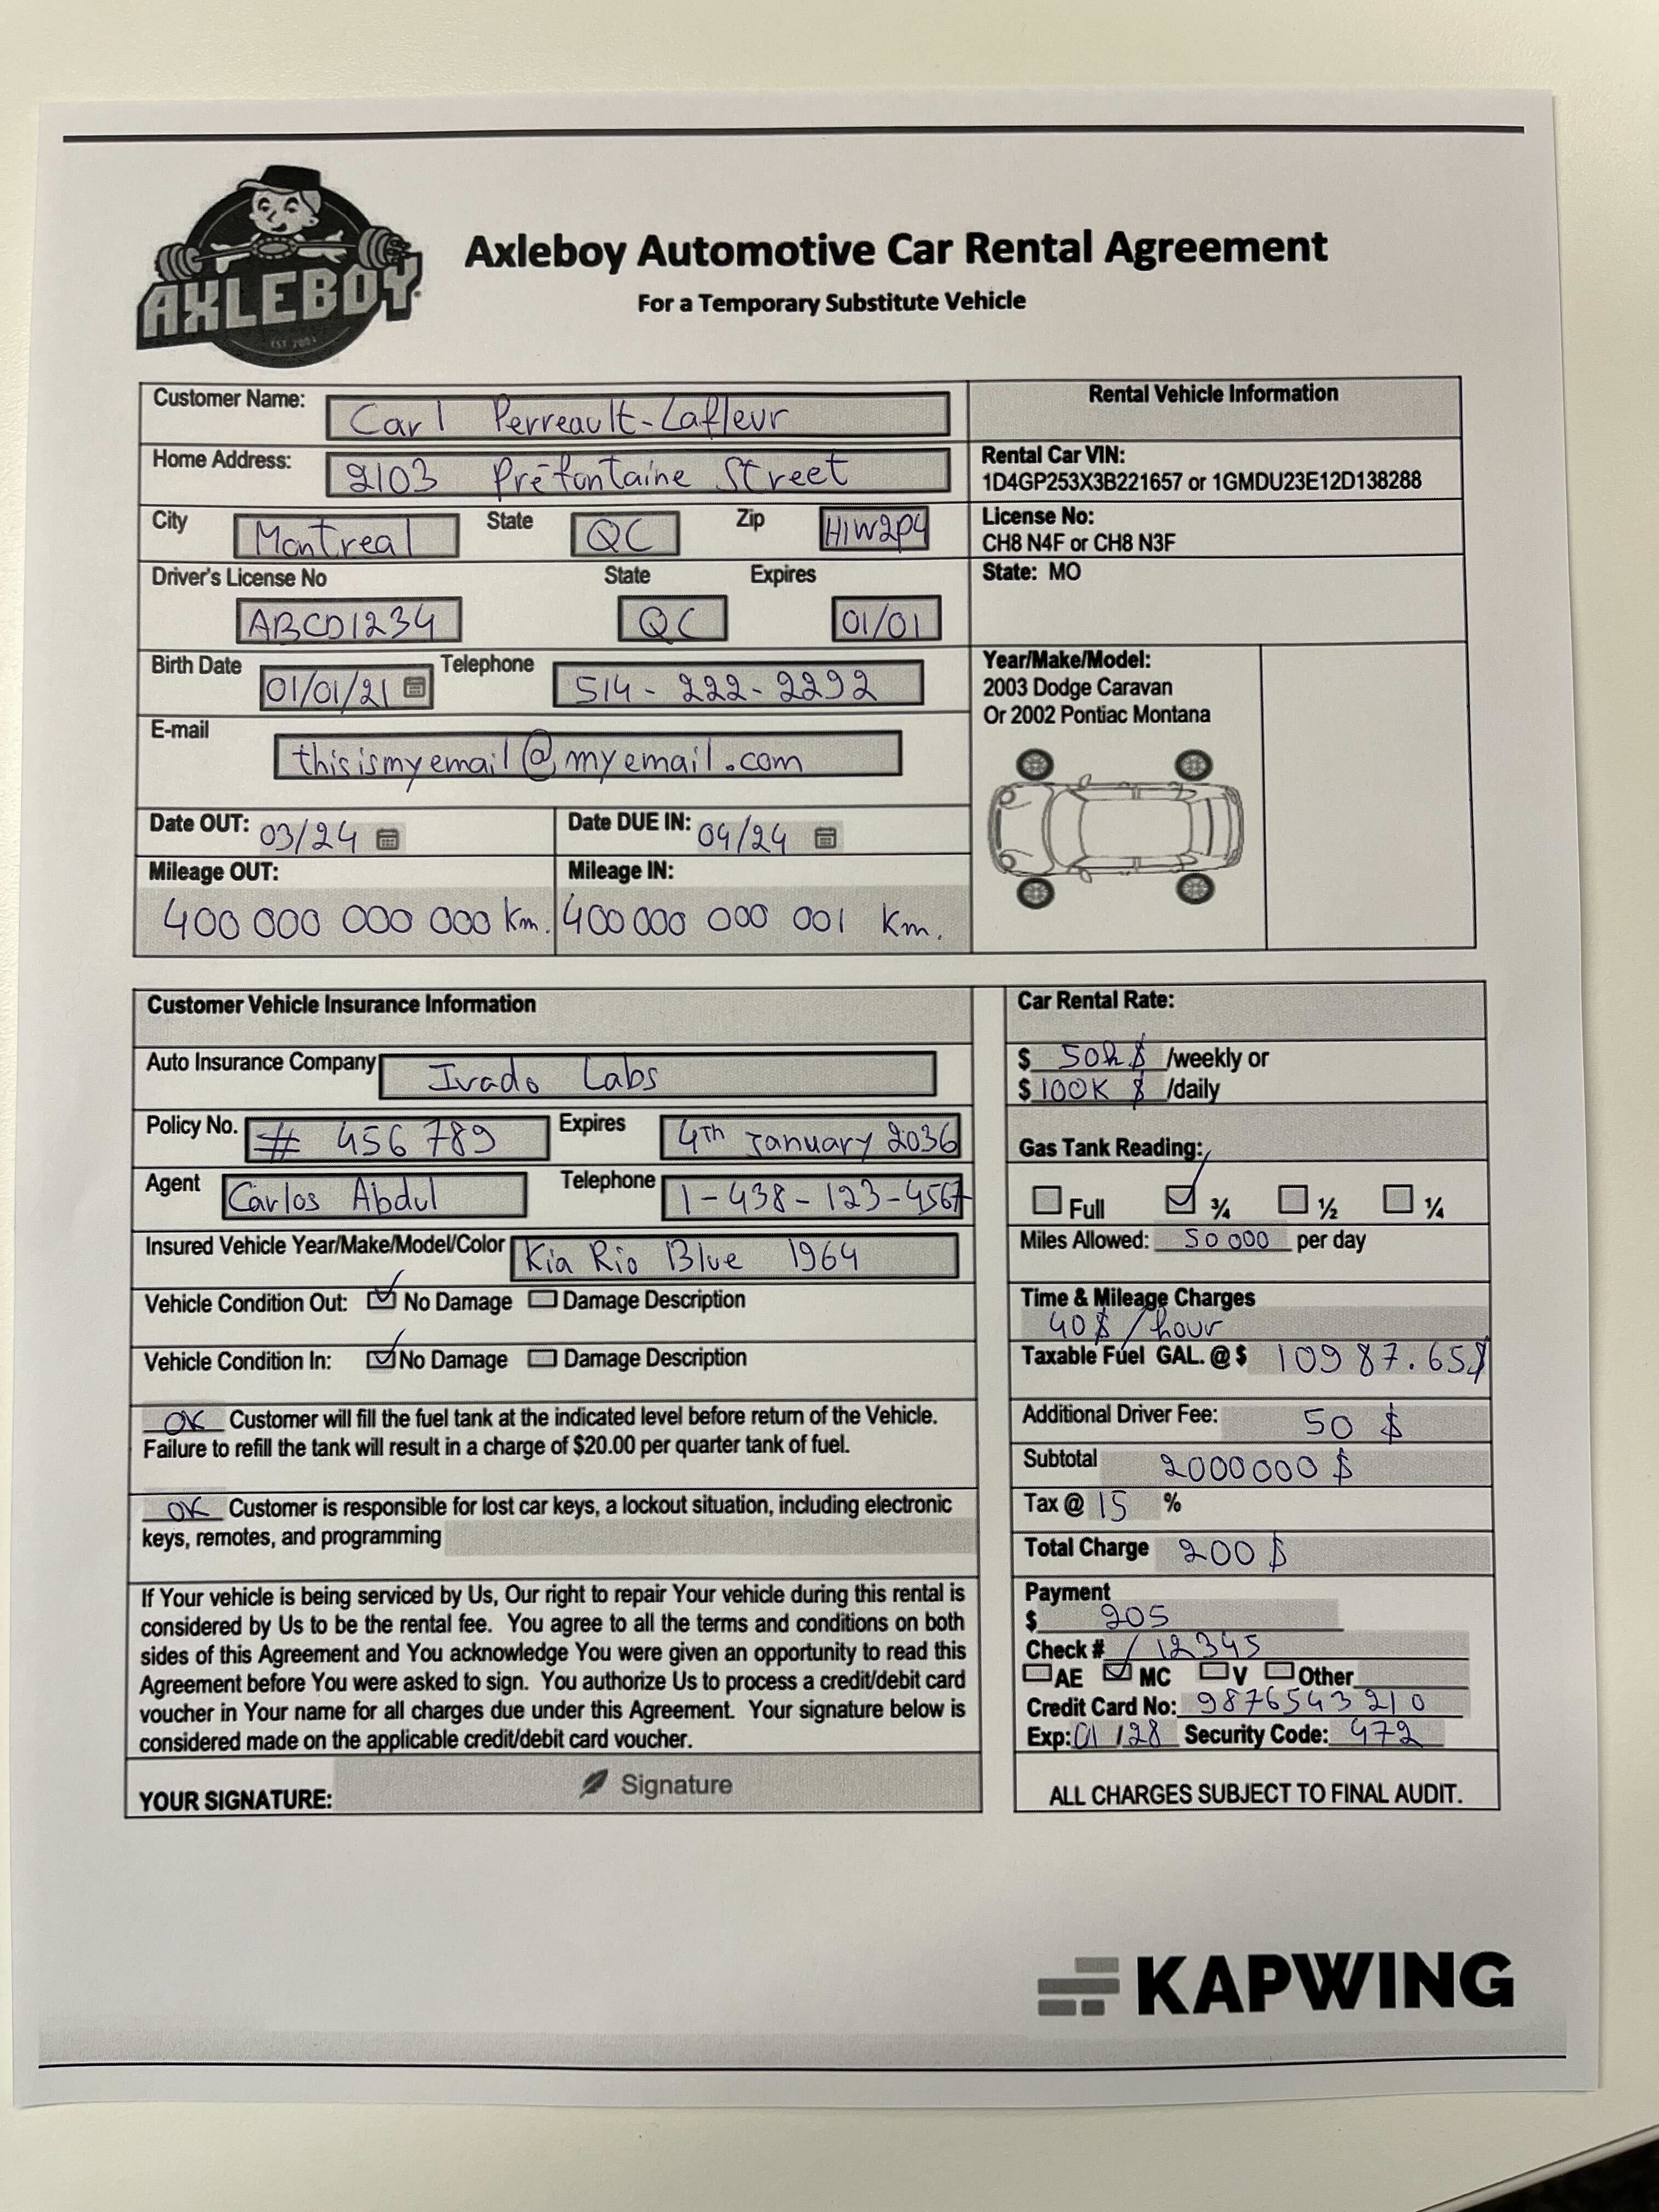 AXLEBOY
EST 2001
Axleboy Automotive Car Rental Agreement
For a Temporary Substitute Vehicle
Customer Name: Carl Perreault-Lafleur
Home Address: 2103 Préfontaine Street
City Montreal State QC Zip H1W2P4
Driver's License No State Expires
ABCD1234 QC 01/01
Birth Date 01/01/21 Telephone 514-222-2292
E-mail
thisismyemail@myemail.com
Date OUT: 03/24 Date DUE IN: 04/24
Mileage OUT: Mileage IN:
400 000 000 000 km. 400 000 000 001 km.
Rental Vehicle Information
Rental Car VIN:
1D4GP253X3B221657 or 1GMDU23E12D138288
License No:
CH8 N4F or CH8 N3F
State: MO
Year/Make/Model:
2003 Dodge Caravan
Or 2002 Pontiac Montana
Customer Vehicle Insurance Information
Auto Insurance Company Ivado Labs
Policy No. # 456 789 Expires 4th January 2036
Agent Carlos Abdul Telephone 1-438-123-4567
Insured Vehicle Year/Make/Model/Color Kia Rio Blue 1964
Vehicle Condition Out: No Damage Damage Description
Vehicle Condition In: No Damage Damage Description
OK Customer will fill the fuel tank at the indicated level before return of the Vehicle.
Failure to refill the tank will result in a charge of $20.00 per quarter tank of fuel.
OK Customer is responsible for lost car keys, a lockout situation, including electronic
keys, remotes, and programming
If Your vehicle is being serviced by Us, Our right to repair Your vehicle during this rental is
considered by Us to be the rental fee. You agree to all the terms and conditions on both
sides of this Agreement and You acknowledge You were given an opportunity to read this
Agreement before You were asked to sign. You authorize Us to process a credit/debit card
voucher in Your name for all charges due under this Agreement. Your signature below is
considered made on the applicable credit/debit card voucher.
YOUR SIGNATURE: Signature
Car Rental Rate:
$ $ /weekly or
$ 100K $ /daily
Gas Tank Reading:
Full ¾ ½ ¼
Miles Allowed: 50 000 per day
Time & Mileage Charges
40$/hour
Taxable Fuel GAL. @ $ 10987.65$
Additional Driver Fee: 50 $
Subtotal 2000000 $
Tax @ 15 %
Total Charge 200 $
Payment
$ 205
Check # 12345
AE MC V Other
Credit Card No: 9876543210
Exp: 01/28 Security Code: 472
ALL CHARGES SUBJECT TO FINAL AUDIT.
KAPWING